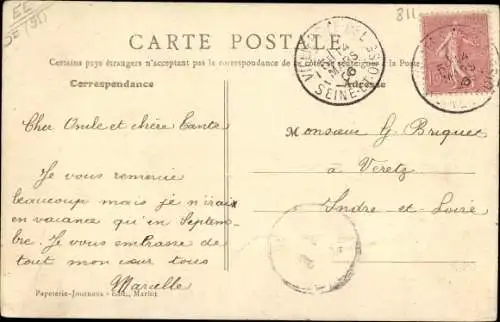 311
CARTE POSTALE
Certains pays étrangers n'acceptent pas la correspondance de ce côté, se renseigner à la Poste
Correspondance
Adresse
SEINE-ET-OISE
Cher Oncle et chère Tante
Je vous remercie
beaucoup mais je n'irai
en vacance qu'en Septem-
bre. Je vous embrasse de
tout mon cœur tous
Marcelle
Monsieur G. Briquet
à Veretz
Indre-et-Loire
Papeterie-Journaux - Edit., Marlot